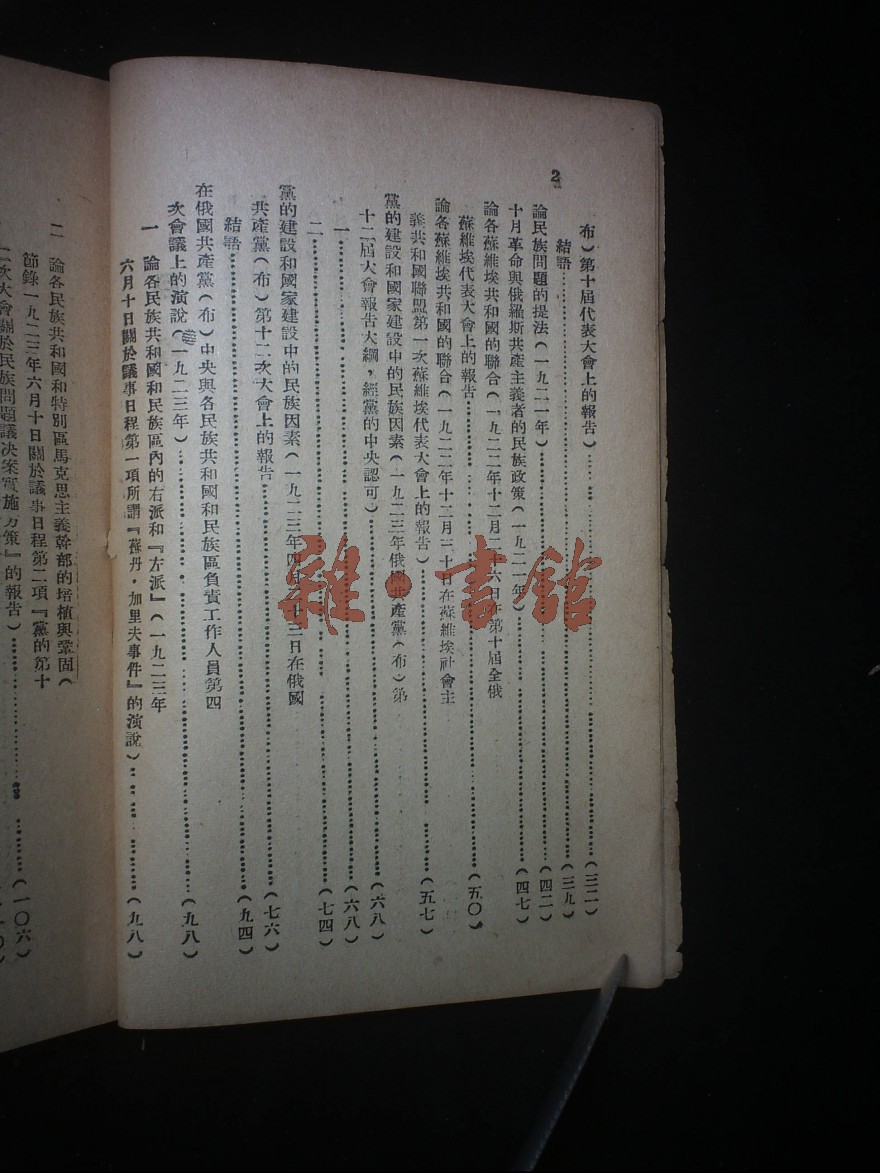 2
布）第十屆代表大會上的報告）……（三二）
結語……（三九）
論民族問題的提法（一九二一年）……（四二）
十月革命與俄羅斯共產主義者的民族政策（一九二一年）……（四七）
論各蘇維埃共和國的聯合（一九二二年十二月二十六日在第十屆全俄
蘇維埃代表大會上的報告……（五〇）
論各蘇維埃共和國的聯合（一九二二年十二月三十日在蘇維埃社會主
義共和國聯盟第一次蘇維埃代表大會上的報告）……（五七）
黨的建設和國家建設中的民族因素（一九二三年俄國共產黨（布）第
十二屆大會報告大綱，經黨的中央認可）……（六八）
一……（六八）
二……（七四）
黨的建設和國家建設中的民族因素（一九二三年四月二十三日在俄國
共產黨（布）第十二次大會上的報告……（七六）
結語……（九四）
在俄國共產黨（布）中央與各民族共和國和民族區負責工作人員第四
次會議上的演說（一九二三年）……（九八）
一 論各民族共和國和民族區內的右派和『左派』（一九二三年
六月十日關於議事日程第一項所謂『蘇丹·加里夫事件』的演說）……（九八）
二 論各民族共和國和特別區馬克思主義幹部的培植與鞏固（
節錄一九二三年六月十日關於議事日程第二項『黨的第十
二次大會關於民族問題議決案實施方策』的報告）……（一〇六）
雜·書館